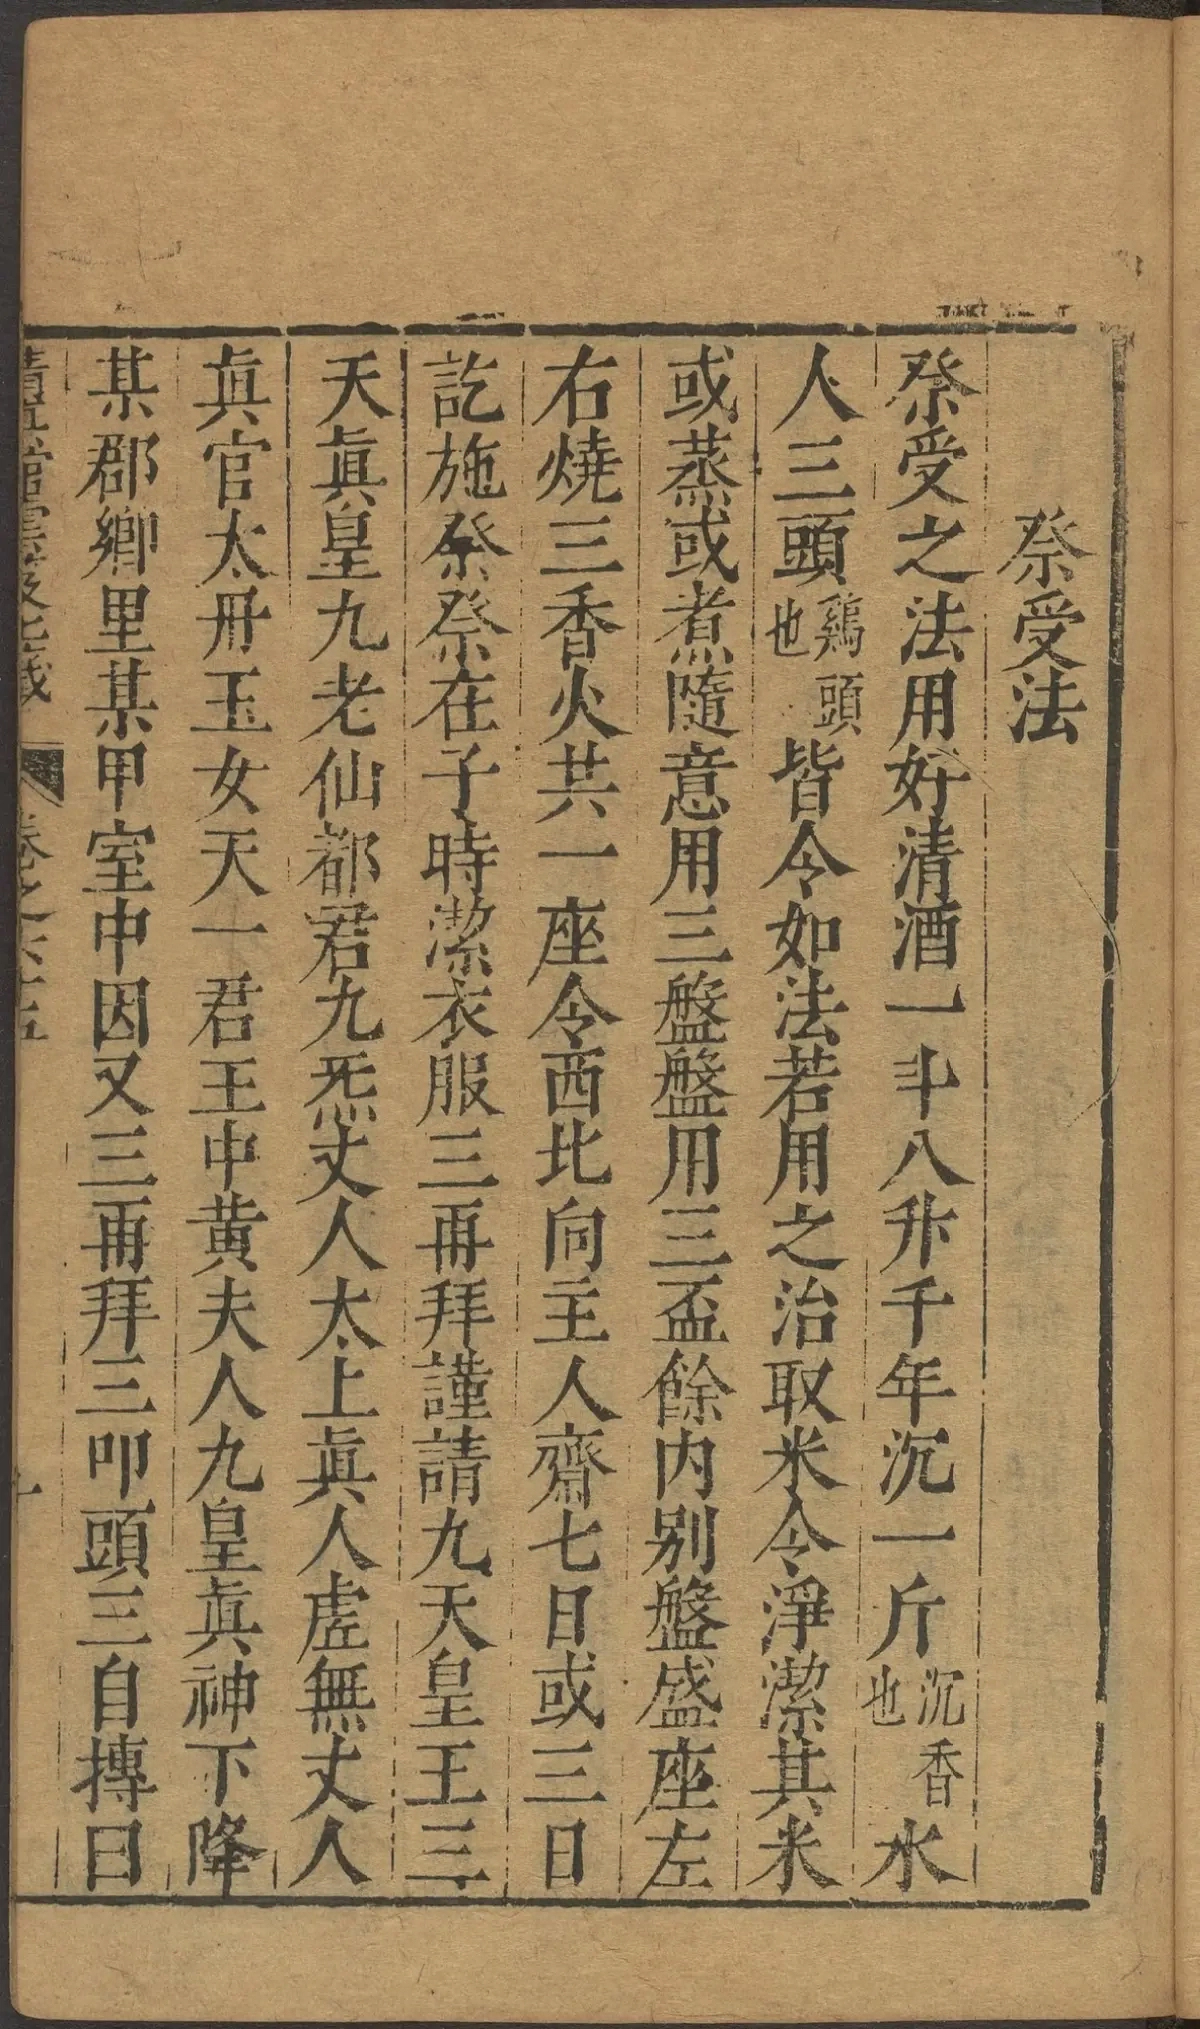 祭受法
祭受之法用好清酒一斗八升千年沉一斤沉香也水
人三頭鷄頭也皆令如法若用之治取米令淨潔其米
或蒸或煮隨意用三盤盤用三盃餘内别盤盛座左
右燒三香火共一座令西北向主人齋七日或三日
訖施祭祭在子時潔衣服三再拜謹請九天皇王三
天眞皇九老仙都君九炁丈人太上眞人虗無丈人
眞官太丹玉女天一君王中黄夫人九皇眞神下降
某郡鄉里某甲室中因又三再拜三叩頭三自摶曰
清眞館雲笈七籖 卷之六十五 一